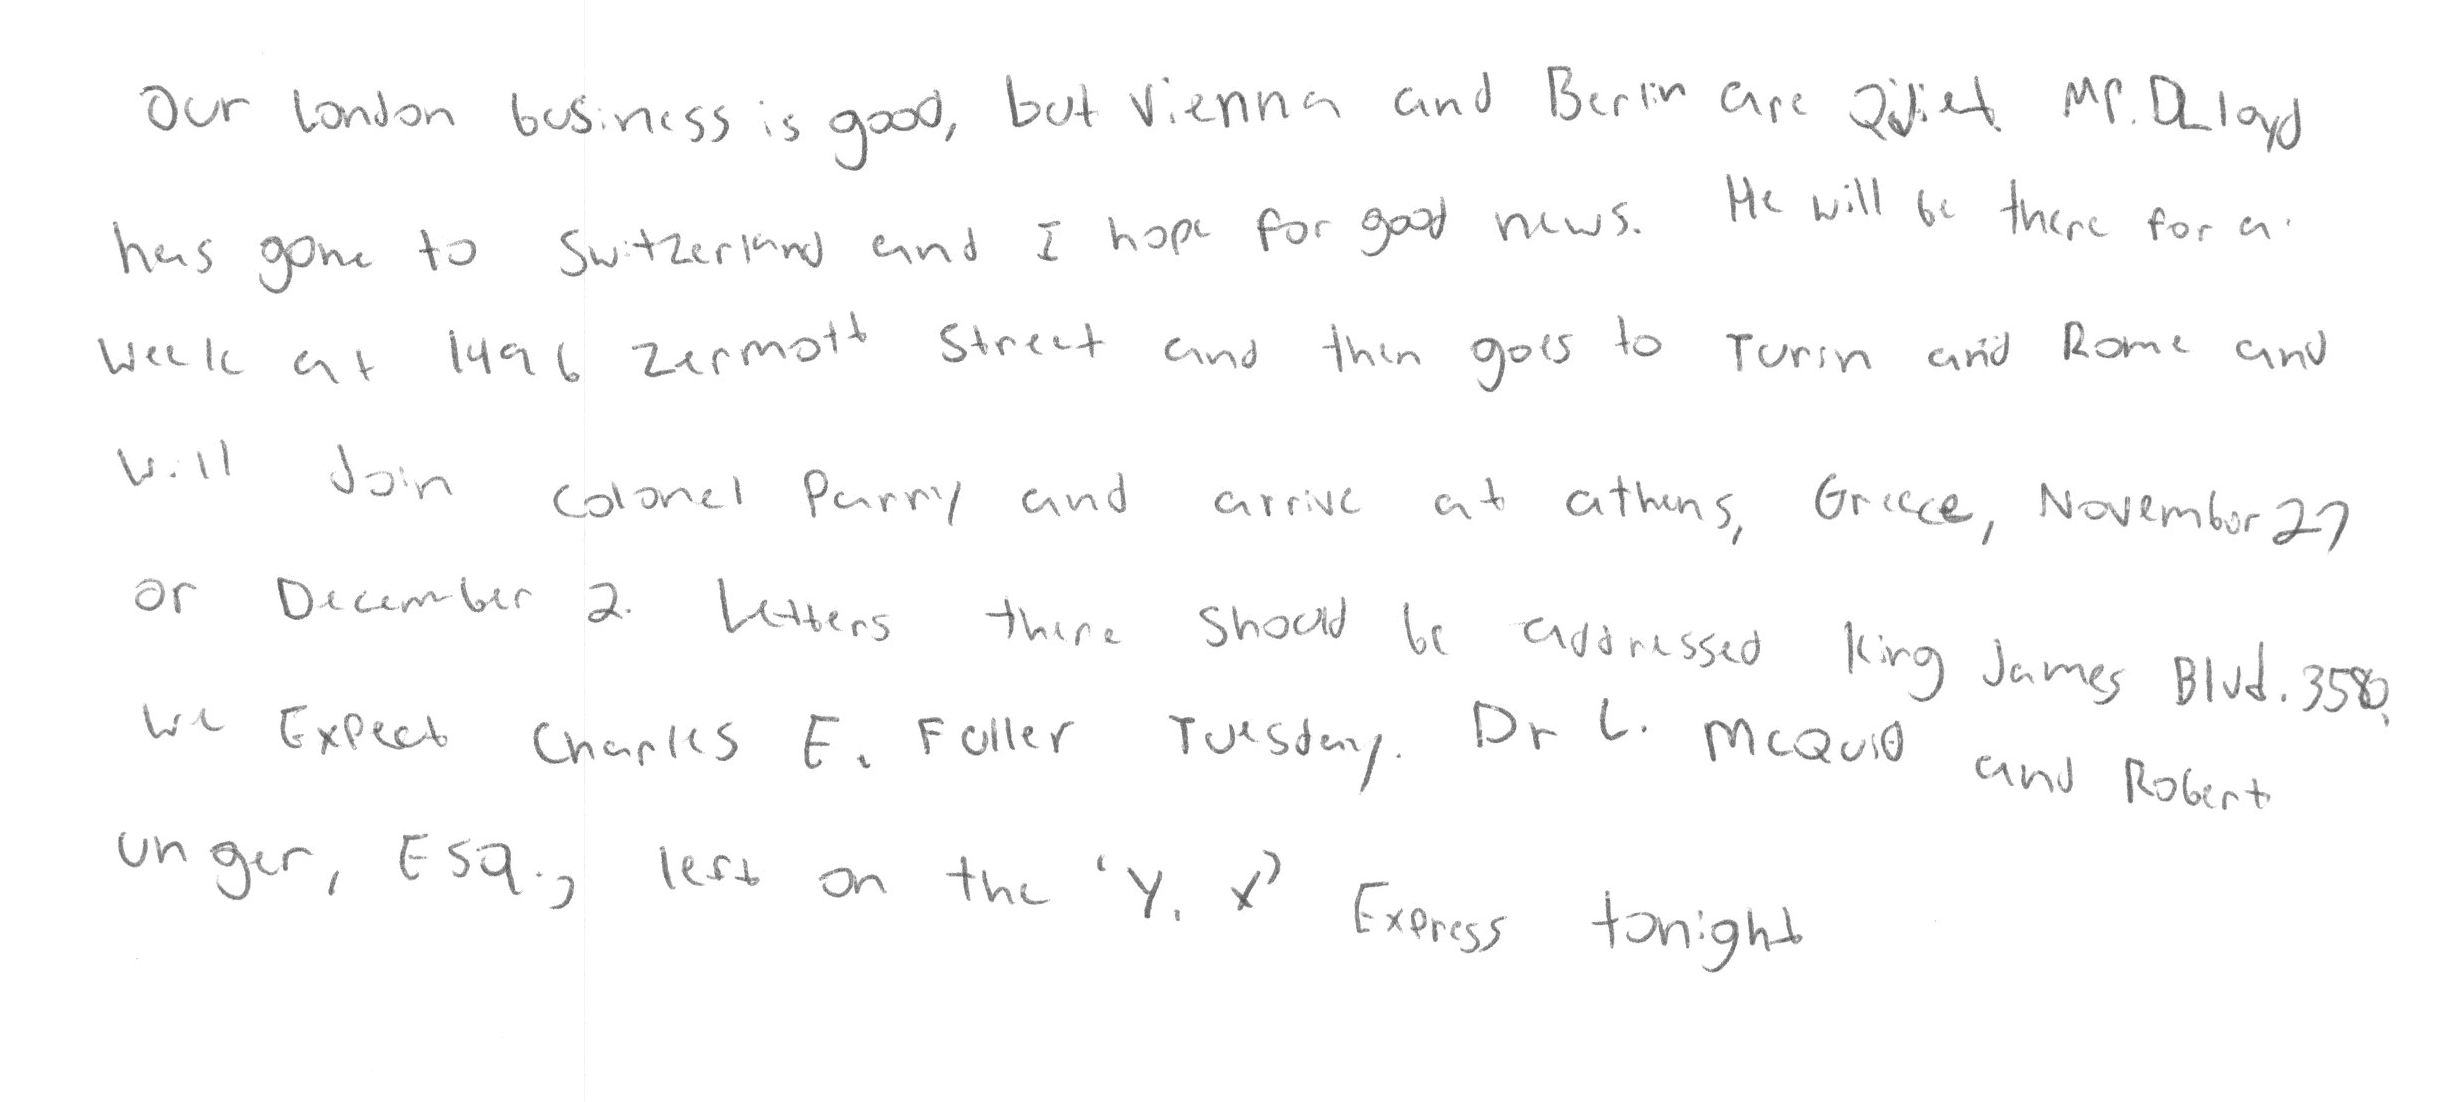 Our London business is good, but Vienna and Berlin are Quiet. Mr. D Lloyd
has gone to Switzerland and I hope for good news. He will be there for a
week at 1496 Zermott Street and then goes to Turin and Rome and
will Join Colonel Parry and arrive at athens, Greece, November 27
or December 2. Letters there should be addressed King James Blvd. 3580.
we Expect Charles E. Fuller Tuesday. Dr L. McQuid and Robert
unger, Esq., left on the 'Y. X' Express tonight